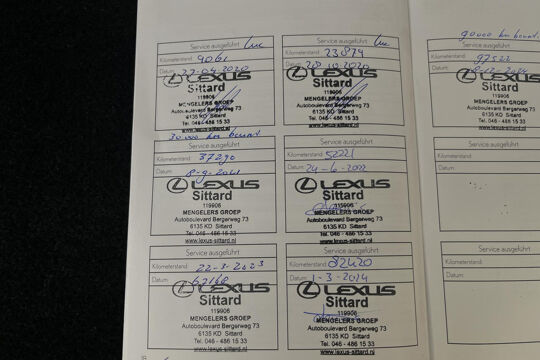 Service ausgeführt
Kilometerstand 9061
Datum: 22-04-2020
LEXUS
Sittard
119906
MENGELERS GROEP
Autoboulevard Bergerweg 73
6135 KD Sittard
Tel. 046 - 486 15 33
www.lexus-sittard.nl
Service ausgeführt
Kilometerstand 23874
Datum: 28 10-2020
LEXUS
Sittard
119906
MENGELERS GROEP
Autoboulevard Bergerweg 73
6135 KD Sittard
Tel. 046 - 486 15 33
www.lexus-sittard.nl
30.000 km beurt
Service ausgeführt
Kilometerstand 37290
Datum: 8-9-2021
LEXUS
Sittard
MENGELERS GROEP
Autoboulevard Bergerweg 73
6135 KD Sittard
Tel. 046 - 486 15 33
www.lexus-sittard.nl
Service ausgeführt
Kilometerstand 52221
Datum: 24-6-2022
LEXUS
Sittard
119906
MENGELERS GROEP
Autoboulevard Bergerweg 73
6135 KD Sittard
Tel. 046 - 486 15 33
www.lexus-sittard.nl
Service ausgeführt
Kilometerstand 22-3-2023
Datum:
LEXUS
Sittard
119906
MENGELERS GROEP
Autoboulevard Bergerweg 73
6135 KD Sittard
Tel. 046 - 486 15 33
www.lexus-sittard.nl
Service ausgeführt
Kilometerstand 82420
Datum: 1-3-2024
LEXUS
Sittard
119906
MENGELERS GROEP
Autoboulevard Bergerweg 73
6135 KD Sittard
Tel. 046 - 486 15 33
www.lexus-sittard.nl
90000 km beurt
Service ausgeführt
Kilometerstand 97522
Datum:
LEXUS
Sittard
119906
MENGELERS GROEP
Autoboulevard Bergerweg 73
6135 KD Sittard
Tel. 046 - 486 15 33
www.lexus-sittard.nl
Service ausgeführt
Kilometerstand:
Datum:
Service ausgeführt
Kilometerstand:
Datum: